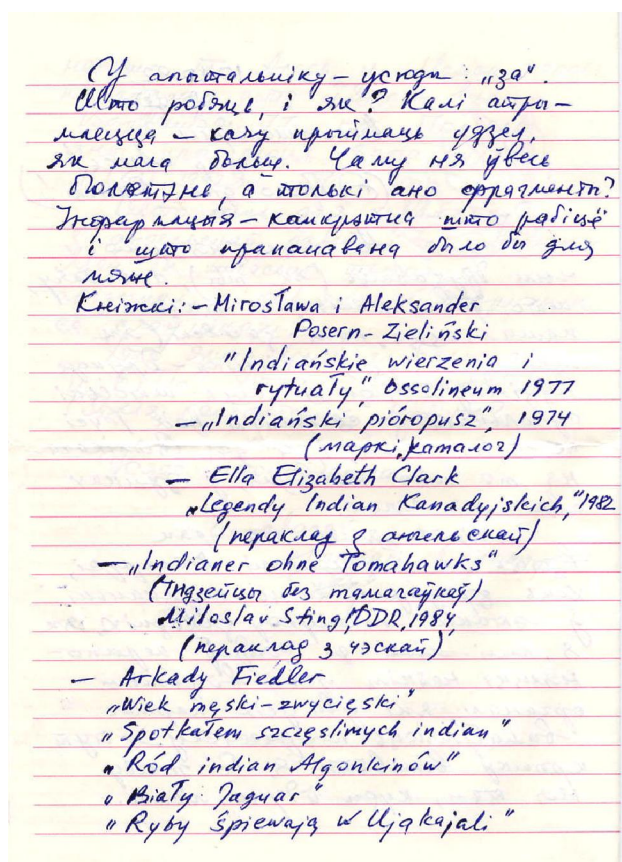 У апытальніку – усюды: „за".
Што робяць, і як? Калі атры-
маецца – хачу прыймаць удзел,
як мага больш. Чаму ня ўвесь
бюлетэнь, а толькі ано фрагменты?
Інфармацыя – канкрэтна што рабіць
і што прапанавана было бы для
мяне.
Кніжкі: – Mirosława i Aleksander
Posern-Zieliński
"Indiańskie wierzenia i
rytuały", Ossolineum 1977
– „Indiański pióropusz", 1974
(маркі, каталог)
– Ella Elizabeth Clark
„Legendy Indian Kanadyjskich," 1982
(пераклад з ангельскай)
– „Indianer ohne Tomahawks"
(Індзейцы без тамагаўкаў)
Miloslav Stingl, DDR, 1984,
(пераклад з чэскай)
– Arkady Fiedler
„Wiek męski – zwycięski"
„Spotkałem szczęslimych indian"
„Ród indian Algonkinów"
„Biały Jaguar"
„Ryby śpiewają w Ujakajali"